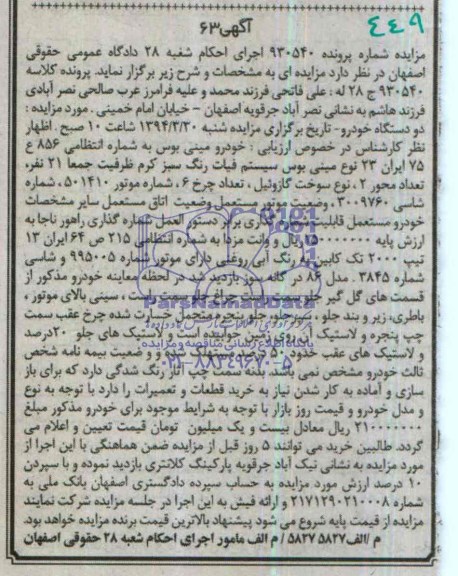 ۴۴۹
آگهی۶۳
مزایده شماره پرونده ۹۳۰۵۴۰ اجرای احکام شعبه ۲۸ دادگاه عمومی حقوقی
اصفهان در نظر دارد مزایده ای به مشخصات و شرح زیر برگزار نماید. پرونده کلاسه
۹۳۰۵۴۰ ج ۲۸ له : علی فاتحی فرزند محمد و علیه فرامرز عرب صالحی نصر آبادی
فرزند هاشم به نشانی نصر آباد جرقویه اصفهان - خیابان امام خمینی . مورد مزایده :
دو دستگاه خودرو- تاریخ برگزاری مزایده شنبه ۱۳۹۴/۳/۳۰ شاعت ۱۰ صبح . اظهار
نظر کارشناس در خصوص ارزیابی : خودرو مینی بوس به شماره انتظامی ۸۵۶ ع
۷۵ ایران ۲۳ نوع مینی بوس سیستم فیات رنگ سبز کرم ظرفیت جمعا ۲۱ نفر،
تعداد محور ۲ ، نوع سوخت گازوئیل ، تعداد چرخ ۶ ، شماره موتور ۵۰۱۴۱۰ ، شماره
شاسی ۳۰۰۹۷۶۰ ، وضعیت موتور مستعمل وضعیت اتاق مستعمل سایر مشخصات
خودرو مستعمل قابلیت شماره گذاری برابر دستور العمل شماره گذاری راهور ناجا به
ارزش پایه ریال و وانت مزدا به شماره انتظامی ۲۱۵ ص ۶۴ ایران ۱۳
تیپ ۲۰۰۰ تک کابین به رنگ آبی روغنی دارای موتور شماره ۹۹۵۰۰۵ و شاسی
شماره ۳۸۴۵ . مدل ۸۶ در بازدید شد در لحظه معاینه خودرو مذکور از
قسمت های گل گیر جلو سمت چپ، چراغ جلو سمت راست ، سینی بالای موتور ،
باطری، زیر و بند جلو ، سپر جلو، جلو پنجره متحمل خسارت شده چرخ عقب سمت
چپ پنچره و لاستیک آن روی زمین خوابیده است و لاستیک های جلو ۲۰درصد
و لاستیک های عقب حدود ۵۰ درصد مستهلک شده و و ضعیت بیمه نامه شخص
ثالث خودرو مشخص نمی باشد. بدنه سمت چپ آثار رنگ شدگی دارد که برای باز
سازی و آماده به کار شدن نیاز به خرید قطعات و تعمیرات را دارد با توجه به نوع
و مدل خودرو و قیمت روز بازار با توجه به شرایط موجود برای خودرو مذکور مبلغ
۲۱۰۰۰۰۰۰۰ ریال معادل بیست و یک میلیون تومان قیمت تعیین و اعلام می
گردد. طالبین خرید می توانند ۵ روز قبل از مزایده ضمن هماهنگی با این اجرا از
مورد مزایده به نشانی نیک آباد جرقویه پارکینگ کلانتری بازدید نموده و با سپردن
۱۰ درصد ارزش مورد مزایده به حساب سپرده دادگستری اصفهان بانک ملی به
شماره ۲۱۷۱۲۹۰۲۱۰۰۰۸ و ارائه فیش به این اجرا در جلسه مزایده شرکت نمایند
مزایده از قیمت پایه شروع می شود پیشنهاد بالاترین قیمت برنده مزایده خواهد بود.
م/الف۵۸۲۷ ۵۸۲۷ / م الف مامور اجرای احکام شعبه ۲۸ حقوقی اصفهان
ParsNamadData
پایگاه اطلاع رسانی مناقصه و مزایده
۰۲۱-۸۸۳۴۹۶۷۰-۵